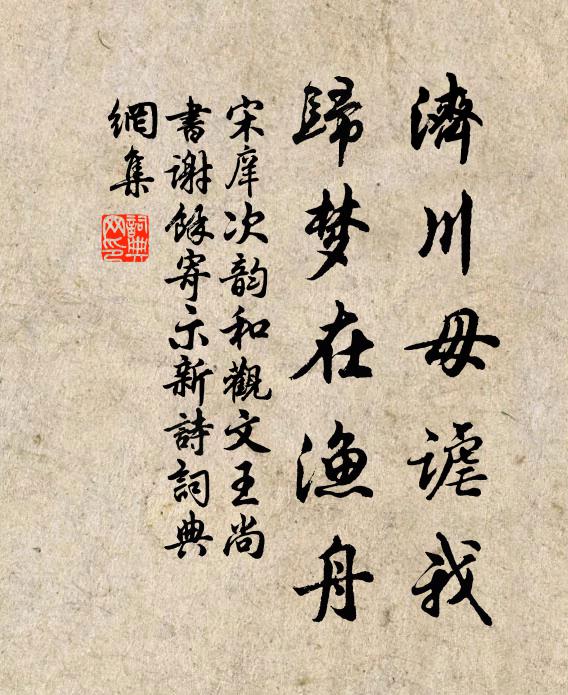 濟川毋謔我
歸梦在渔舟
宋庠次韵和觀文王尚
書謝馀寄示新詩詞典
網集
詞典網印